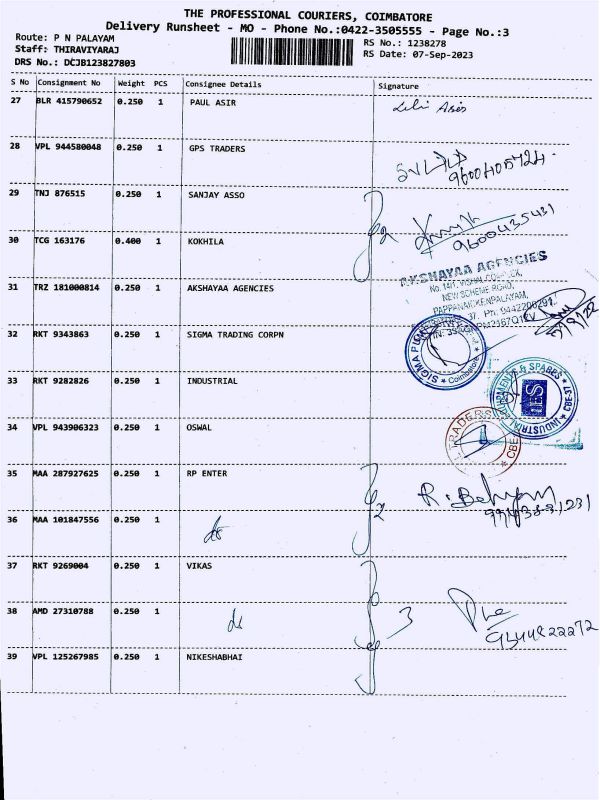 THE PROFESSIONAL COURIERS, COIMBATORE
Delivery Runsheet - MO - Phone No.:0422-3505555 - Page No.:3
Route: P N PALAYAM
RS No.: 1238278
Staff: THIRAVIYARAJ
RS Date: 07-Sep-2023
DRS No.: DCJB123827803
S No Consignment No Weight PCS Consignee Details Signature
27 BLR 415790652 0.250 1 PAUL ASIR
28 VPL 944580048 0.250 1 GPS TRADERS
9600405724
29 TNJ 876515 0.250 1 SANJAY ASSO
2
9600435431
30 TCG 163176 0.400 1 KOKHILA
AKSHAYAA AGENCIES
NEW SCHEME ROAD,
PAPPANAICKENPALAYAM,
31 TRZ 181000814 0.250 1 AKSHAYAA AGENCIES
32 RKT 9343863 0.250 1 SIGMA TRADING CORPN
SIGMA
Coimbatore
33 RKT 9282826 0.250 1 INDUSTRIAL
INDUSTRIAL EQUIPMENTS & SPARES
IES
34 VPL 943906323 0.250 1 OSWAL
TRADERS
CBE
35 MAA 287927625 0.250 1 RP ENTER
2
R.
36 MAA 101847556 0.250 1 do
37 RKT 9269004 0.250 1 VIKAS
38 AMD 27310788 0.250 1 do
3
39 VPL 125267985 0.250 1 NIKESHABHAI